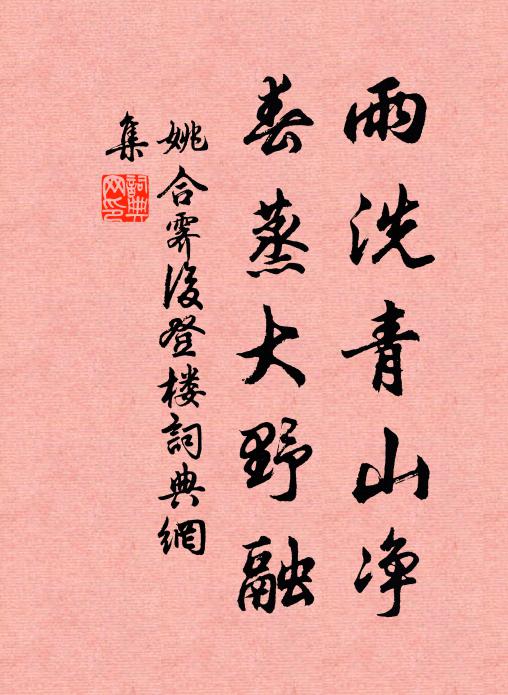 雨洗青山净
春蒸大野融
姚合霁後登楼詞典網
集
詞典网印